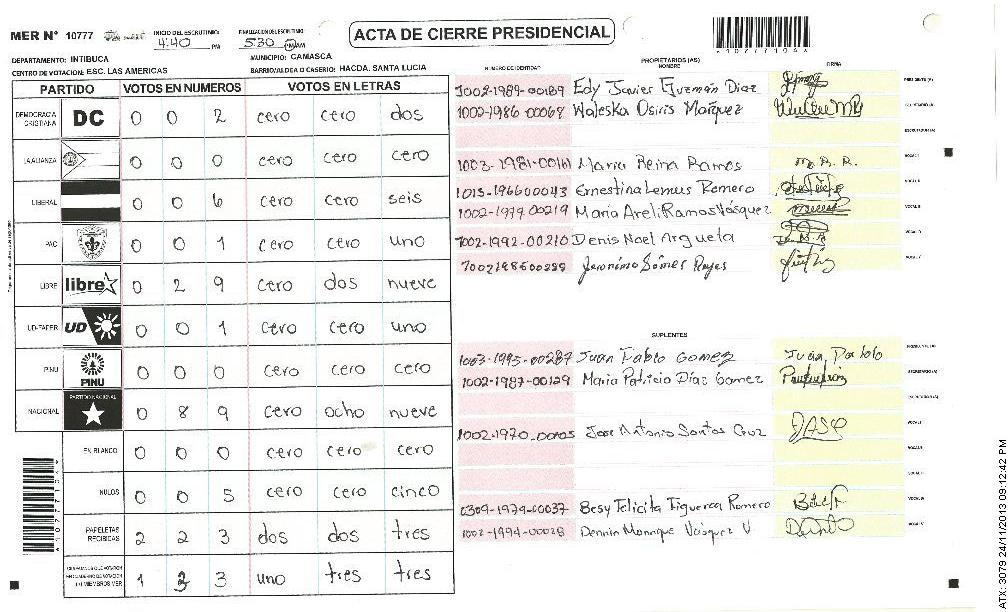 MER N° 10777
INICIO DEL ESCRUTINIO: 4:40 PM
FINALIZACION DEL ESCRUTINIO 5:30 PM/AM
ACTA DE CIERRE PRESIDENCIAL
A10777104A
DEPARTAMENTO: INTIBUCA
MUNICIPIO: CAMASCA
CENTRO DE VOTACION: ESC. LAS AMERICAS
BARRIO/ALDEA O CASERIO: HACDA. SANTA LUCIA
PARTIDO VOTOS EN NUMEROS VOTOS EN LETRAS
DEMOCRACIA CRISTIANA DC 0 0 2 cero cero dos
LA ALIANZA 0 0 0 cero cero cero
LIBERAL 0 0 6 cero cero seis
PAC 0 0 1 cero cero uno
LIBRE libre 0 2 9 cero dos nueve
UD-FAPER UD 0 0 1 cero cero uno
PINU PINU 0 0 0 cero cero cero
NACIONAL PARTIDO NACIONAL 0 8 9 cero ocho nueve
EN BLANCO 0 0 0 cero cero cero
NULOS 0 0 5 cero cero cinco
PAPELETAS RECIBIDAS 2 2 3 dos dos tres
1 3 3 uno tres tres
PROPIETARIOS (AS)
NUMERO DE IDENTIDAD NOMBRE FIRMA
1002-1989-00189 Edy Javier Guzmán Diaz PRESIDENTE (A)
1002-1986-00069 Waleska Osiris Marquez SECRETARIO (A)
ESCRUTADOR (A)
1003-1981-00161 Maria Reina Ramos M. R. R. VOCAL I
1013-196600043 Ernestina Lemus Romero VOCAL II
1002-1979-00219 Maria Areli Ramos Vásquez VOCAL III
1002-1992-00210 Denis Noel Argueta VOCAL IV
Jeronimo Gómes Reyes VOCAL V
SUPLENTES
1003-1995-00287 Juan Pablo Gomez Juan Pablo PRESIDENTE (A)
1002-1987-00129 Maria Patricia Díaz Gomez SECRETARIO (A)
ESCRUTADOR (A)
1002-1970-00105 Jose Antonio Santos Cruz JASC VOCAL I
VOCAL II
VOCAL III
0309-1979-00037 Besy Felicita Figueroa Romero VOCAL IV
1002-1994-00028 Dennin Manrique Vásquez V VOCAL V
ATX: 3079 24/11/2013 09:12:42 PM